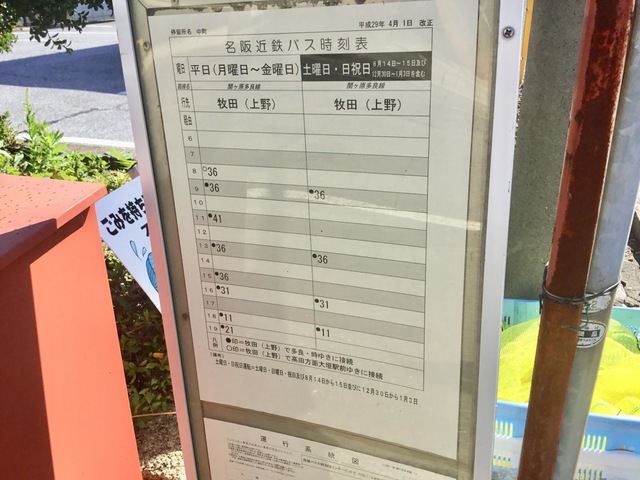 停留所名 中町
平成29年 4月 1日 改正
名阪近鉄バス時刻表
曜日 平日(月曜日～金曜日) 土曜日・日祝日 8月14日～15日及び 12月30日～1月3日を含む
路線名 関ヶ原多良線 関ヶ原多良線
行先 牧田(上野) 牧田(上野)
経由
6
7
8 ○36
9 ●36 ●36
10
11 ●41
12
13 ●36 ●36
14
15 ●36
16 ●31 ●31
17
18 ●11
19 ●21 ●11
凡例 ●印=牧田(上野)で多良・時ゆきに接続
○印=牧田(上野)で高田方面大垣駅前ゆきに接続
(備考)
土曜日・日祝日運転=土曜日・日曜日・祝日及び8月14日から15日並びに12月30日から1月3日
運行系統図
ごみを持ち